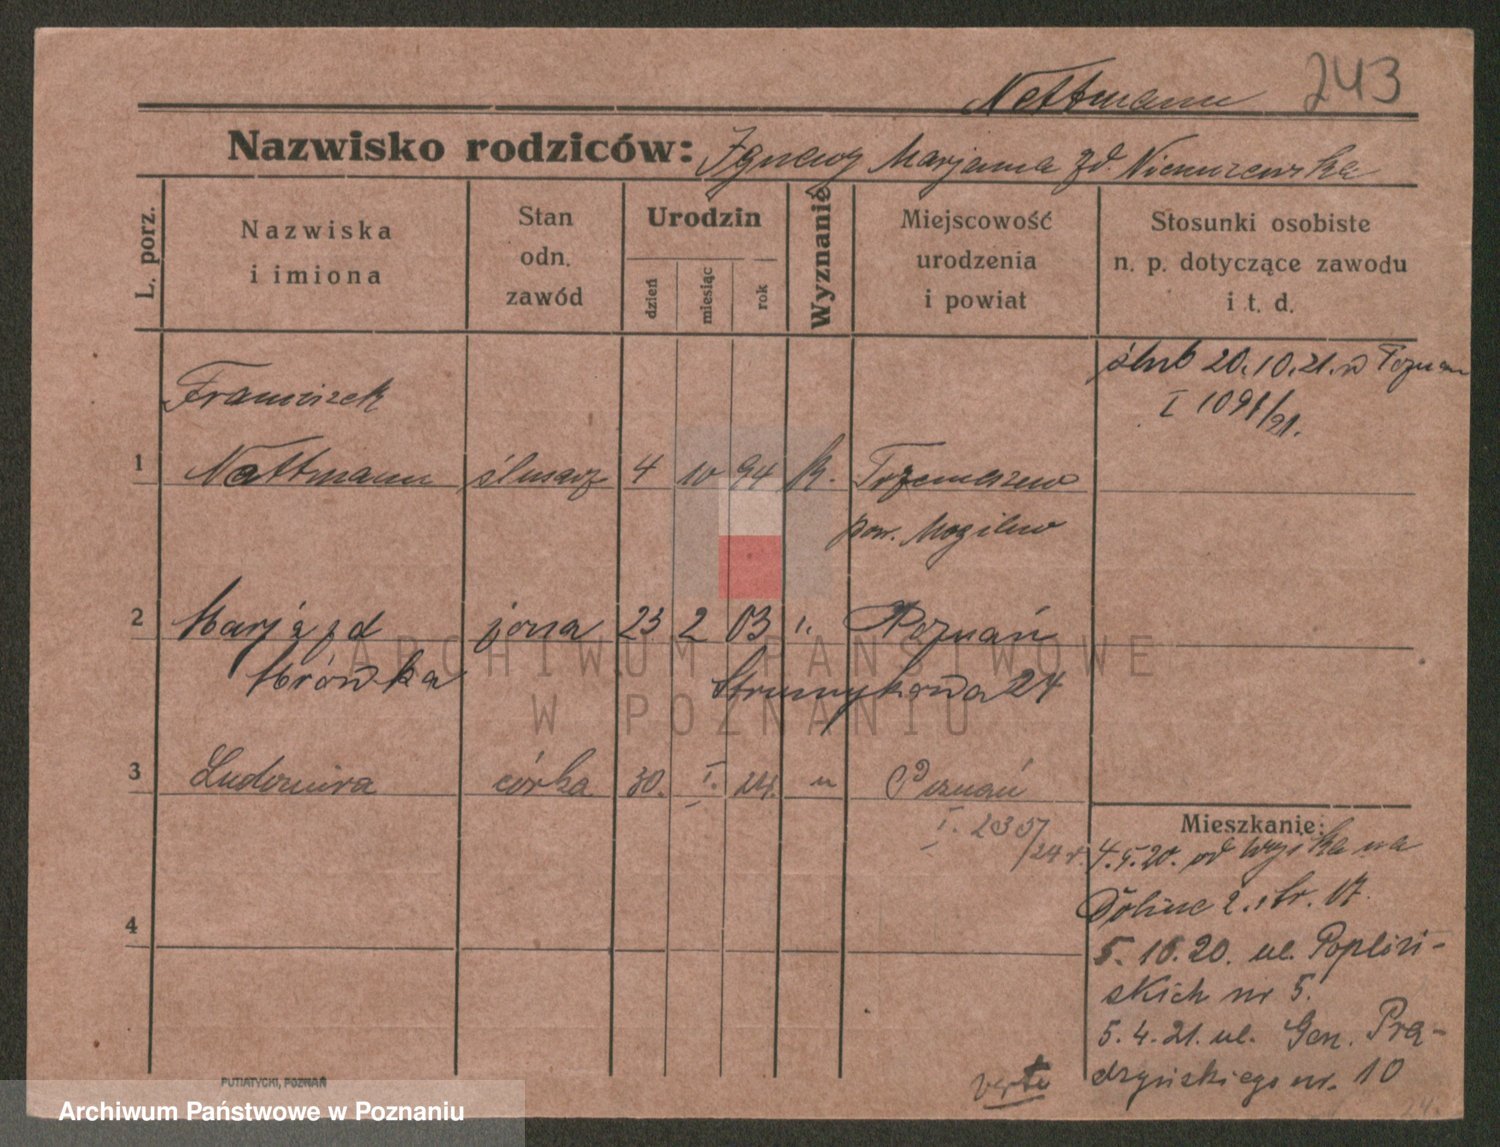 Nettmann 243
Nazwisko rodziców: Ignacy Marjanna zd.
L. porz.
Nazwiska
i imiona
Stan
odn.
zawód
Urodzin
dzień
miesiąc
rok
Wyznanie
Miejscowość
urodzenia
i powiat
Stosunki osobiste
n. p. dotyczące zawodu
i t. d.
ślub 20.10.21. w Poznan
I 1091/21.
Franciszek
1 Nettmann ślusarz 4 10 94 k. Trzemeszno
pow. Mogilno
2 Marja zd żona 23 2 03 Poznań
Mrówka Strumykowa 24
3 Ludomira córka 30. I. 24. " Poznań
I. 2357/24 r.
Mieszkanie:
4.5.20. od
Dolina 2. str. 17.
4
5.10.20. ul. Popliń-
skich nr 5.
5.4.21. ul. Gen. Prą-
dzyńskiego nr. 10
verte
PUTIATYCKI, POZNAŃ
ARCHIWUM PAŃSTWOWE
W POZNANIU
Archiwum Państwowe w Poznaniu